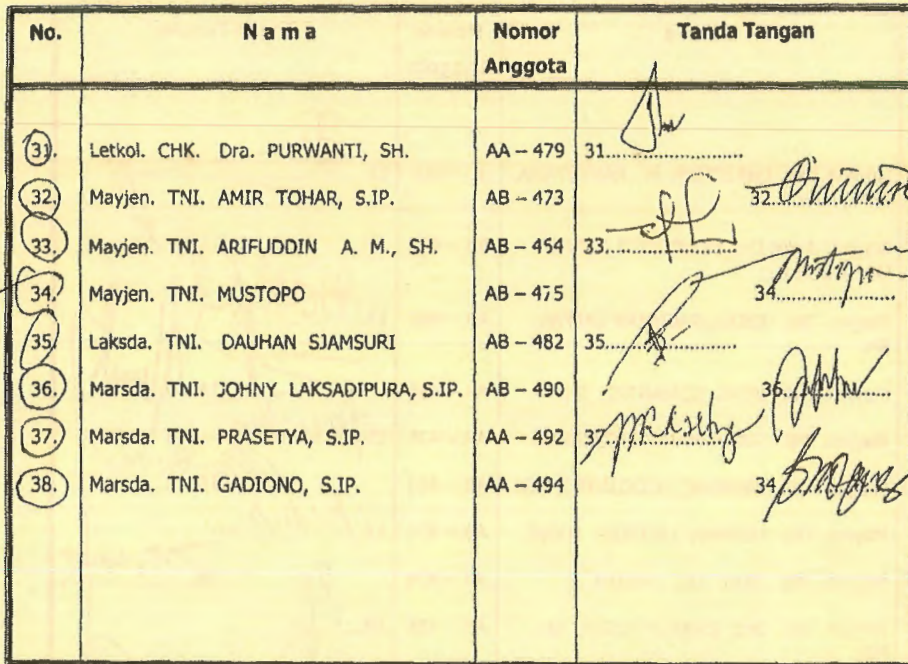 No. N a m a Nomor Anggota Tanda Tangan
31. Letkol. CHK. Dra. PURWANTI, SH. AA – 479 31..................
32. Mayjen. TNI. AMIR TOHAR, S.IP. AB – 473 32..................
33. Mayjen. TNI. ARIFUDDIN A. M., SH. AB – 454 33..................
34. Mayjen. TNI. MUSTOPO AB – 475 34..................
35. Laksda. TNI. DAUHAN SJAMSURI AB – 482 35..................
36. Marsda. TNI. JOHNY LAKSADIPURA, S.IP. AB – 490 36..................
37. Marsda. TNI. PRASETYA, S.IP. AA – 492 37..................
38. Marsda. TNI. GADIONO, S.IP. AA – 494 34..................